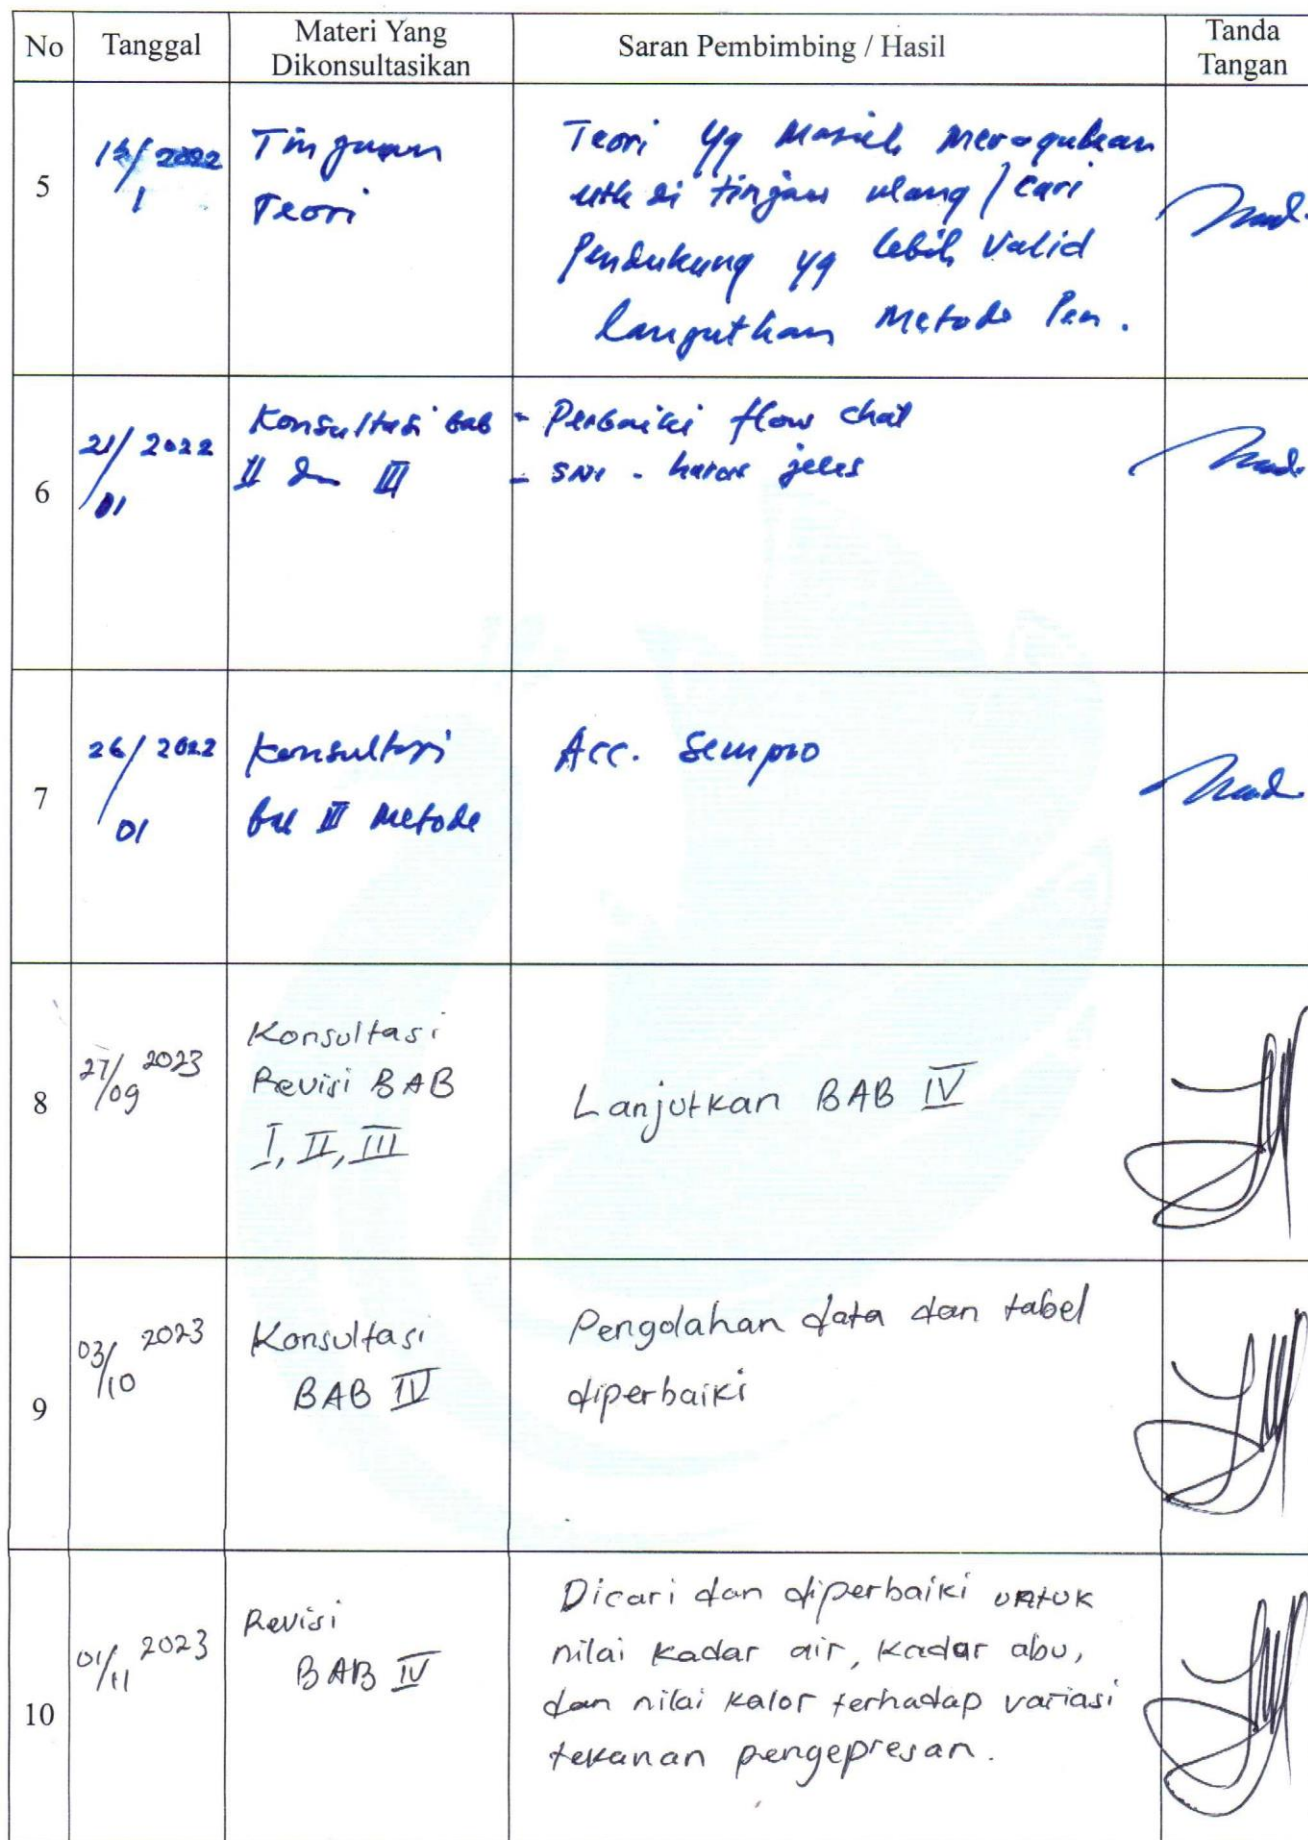 No Tanggal Materi Yang Dikonsultasikan Saran Pembimbing / Hasil Tanda Tangan
5
2022
1
Tinjauan
Teori
Teori yg Masih meragukan
utk di tinjau ulang / cari
pendukung yg lebih valid
lanjutkan Metode Pen.
6
21/ 2022
01
Konsultasi Bab
II dan III
- Perbaiki flow chat
- SNI - harus jelas
7
26/ 2022
01
Konsultasi
Bab III Metode
Acc. Sempro
8
27/09 2023
Konsultasi
Revisi BAB
I, II, III
Lanjutkan BAB IV
9
03/10 2023
Konsultasi
BAB IV
Pengolahan data dan tabel
diperbaiki
10
01/11 2023
Revisi
BAB IV
Dicari dan diperbaiki untuk
nilai kadar air, kadar abu,
dan nilai kalor terhadap variasi
tekanan pengepresan.